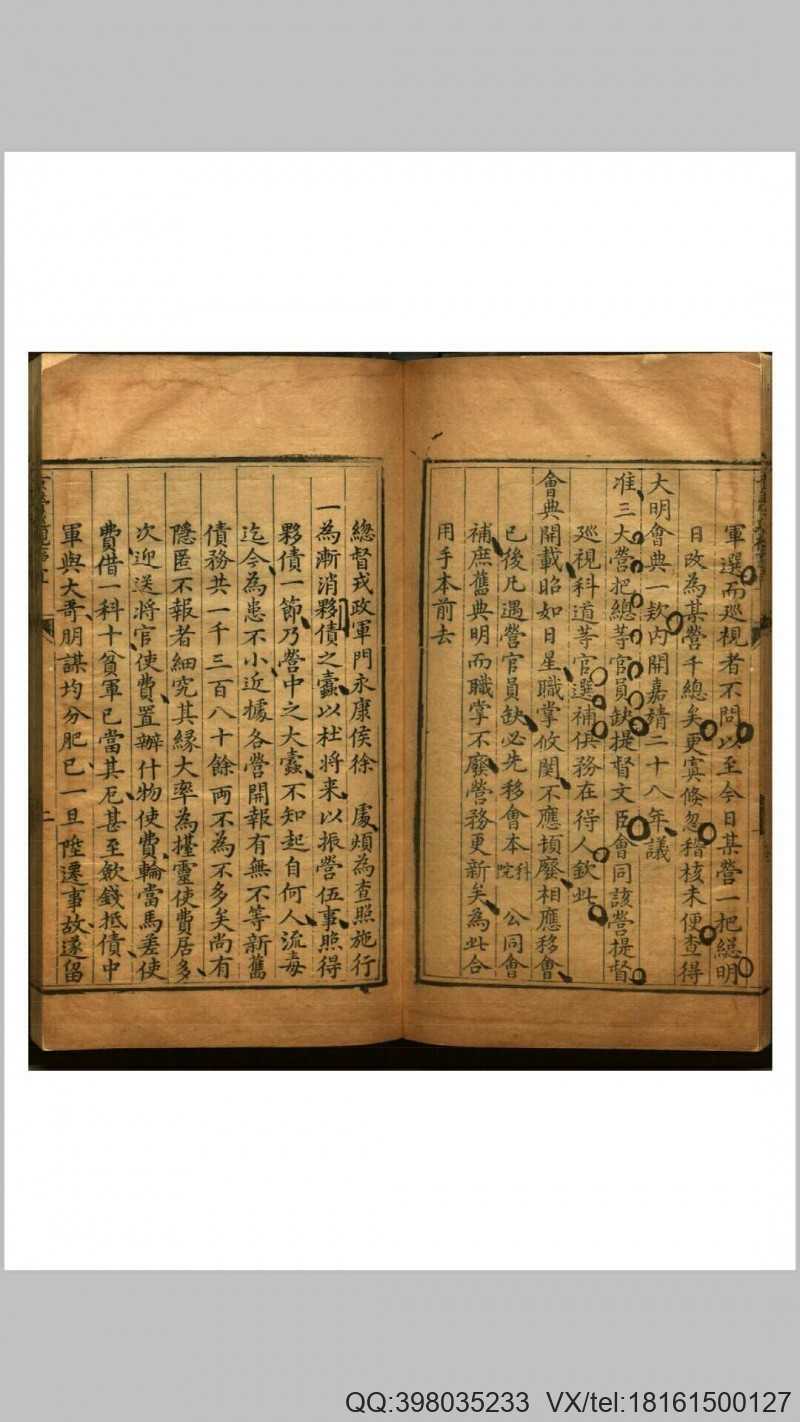 軍選而巡視者不問以至今日某營一把總明
日改為某營千總矣更寞倏忽稽核未便查得
大明會典一款內開嘉靖二十八年議
准三大營把總等官員缺提督文臣會同該營提督
巡視科道等官選補俱務在得人欽此
會典開載昭如日星職掌攸関不應頓廢相應移會
已後凡遇營官員缺必先移會本科院公同會
補庶舊典明而職掌不廢營務更新矣為此合
用手本前去
總督戎政軍門永康侯徐 處煩為查照施行
一為漸消夥債之蠹以杜將來以振營伍事照得
夥債一節乃營中之大蠹不知起自何人流毒
迄今為患不小近據各營開報有無不等新舊
債務共一千三百八十餘両不為不多矣尚有
隱匿不報者細究其緣大率為擡靈使費居多
次迎送將官使費置辦什物使費輪當馬差使
費借一科十貧軍已當其厄甚至斂錢抵債中
軍與大哥朋謀均分肥己一旦陞遷事故遂留
二
QQ:398035233 VX/tel:18161500127